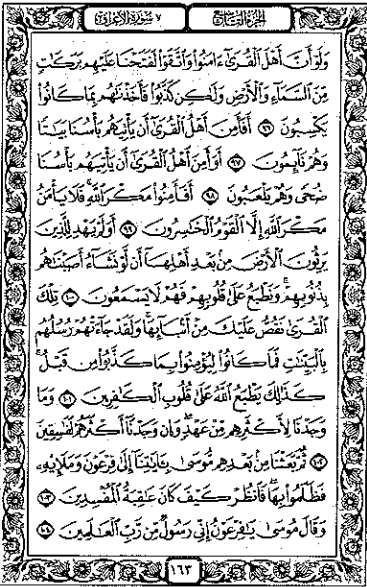 الجزء التاسع ٧ سورة الأعراف
وَلَوْ أَنَّ أَهْلَ ٱلْقُرَىٰٓ ءَامَنُوا۟ وَٱتَّقَوْا۟ لَفَتَحْنَا عَلَيْهِم بَرَكَـٰتٍ
مِّنَ ٱلسَّمَآءِ وَٱلْأَرْضِ وَلَـٰكِن كَذَّبُوا۟ فَأَخَذْنَـٰهُم بِمَا كَانُوا۟
يَكْسِبُونَ ٩٦ أَفَأَمِنَ أَهْلُ ٱلْقُرَىٰٓ أَن يَأْتِيَهُم بَأْسُنَا بَيَـٰتًا
وَهُمْ نَآئِمُونَ ٩٧ أَوَأَمِنَ أَهْلُ ٱلْقُرَىٰٓ أَن يَأْتِيَهُم بَأْسُنَا
ضُحًى وَهُمْ يَلْعَبُونَ ٩٨ أَفَأَمِنُوا۟ مَكْرَ ٱللَّهِ ۚ فَلَا يَأْمَنُ
مَكْرَ ٱللَّهِ إِلَّا ٱلْقَوْمُ ٱلْخَـٰسِرُونَ ٩٩ أَوَلَمْ يَهْدِ لِلَّذِينَ
يَرِثُونَ ٱلْأَرْضَ مِنۢ بَعْدِ أَهْلِهَآ أَن لَّوْ نَشَآءُ أَصَبْنَـٰهُم
بِذُنُوبِهِمْ ۚ وَنَطْبَعُ عَلَىٰ قُلُوبِهِمْ فَهُمْ لَا يَسْمَعُونَ ١٠٠ تِلْكَ
ٱلْقُرَىٰ نَقُصُّ عَلَيْكَ مِنْ أَنۢبَآئِهَا ۚ وَلَقَدْ جَآءَتْهُمْ رُسُلُهُم
بِٱلْبَيِّنَـٰتِ فَمَا كَانُوا۟ لِيُؤْمِنُوا۟ بِمَا كَذَّبُوا۟ مِن قَبْلُ ۚ
كَذَٰلِكَ يَطْبَعُ ٱللَّهُ عَلَىٰ قُلُوبِ ٱلْكَـٰفِرِينَ ١٠١ وَمَا
وَجَدْنَا لِأَكْثَرِهِم مِّنْ عَهْدٍ ۖ وَإِن وَجَدْنَآ أَكْثَرَهُمْ لَفَـٰسِقِينَ
١٠٢ ثُمَّ بَعَثْنَا مِنۢ بَعْدِهِم مُّوسَىٰ بِـَٔايَـٰتِنَآ إِلَىٰ فِرْعَوْنَ وَمَلَإِي۟هِۦ
فَظَلَمُوا۟ بِهَا ۖ فَٱنظُرْ كَيْفَ كَانَ عَـٰقِبَةُ ٱلْمُفْسِدِينَ ١٠٣
وَقَالَ مُوسَىٰ يَـٰفِرْعَوْنُ إِنِّى رَسُولٌ مِّن رَّبِّ ٱلْعَـٰلَمِينَ ١٠٤
١٦٣